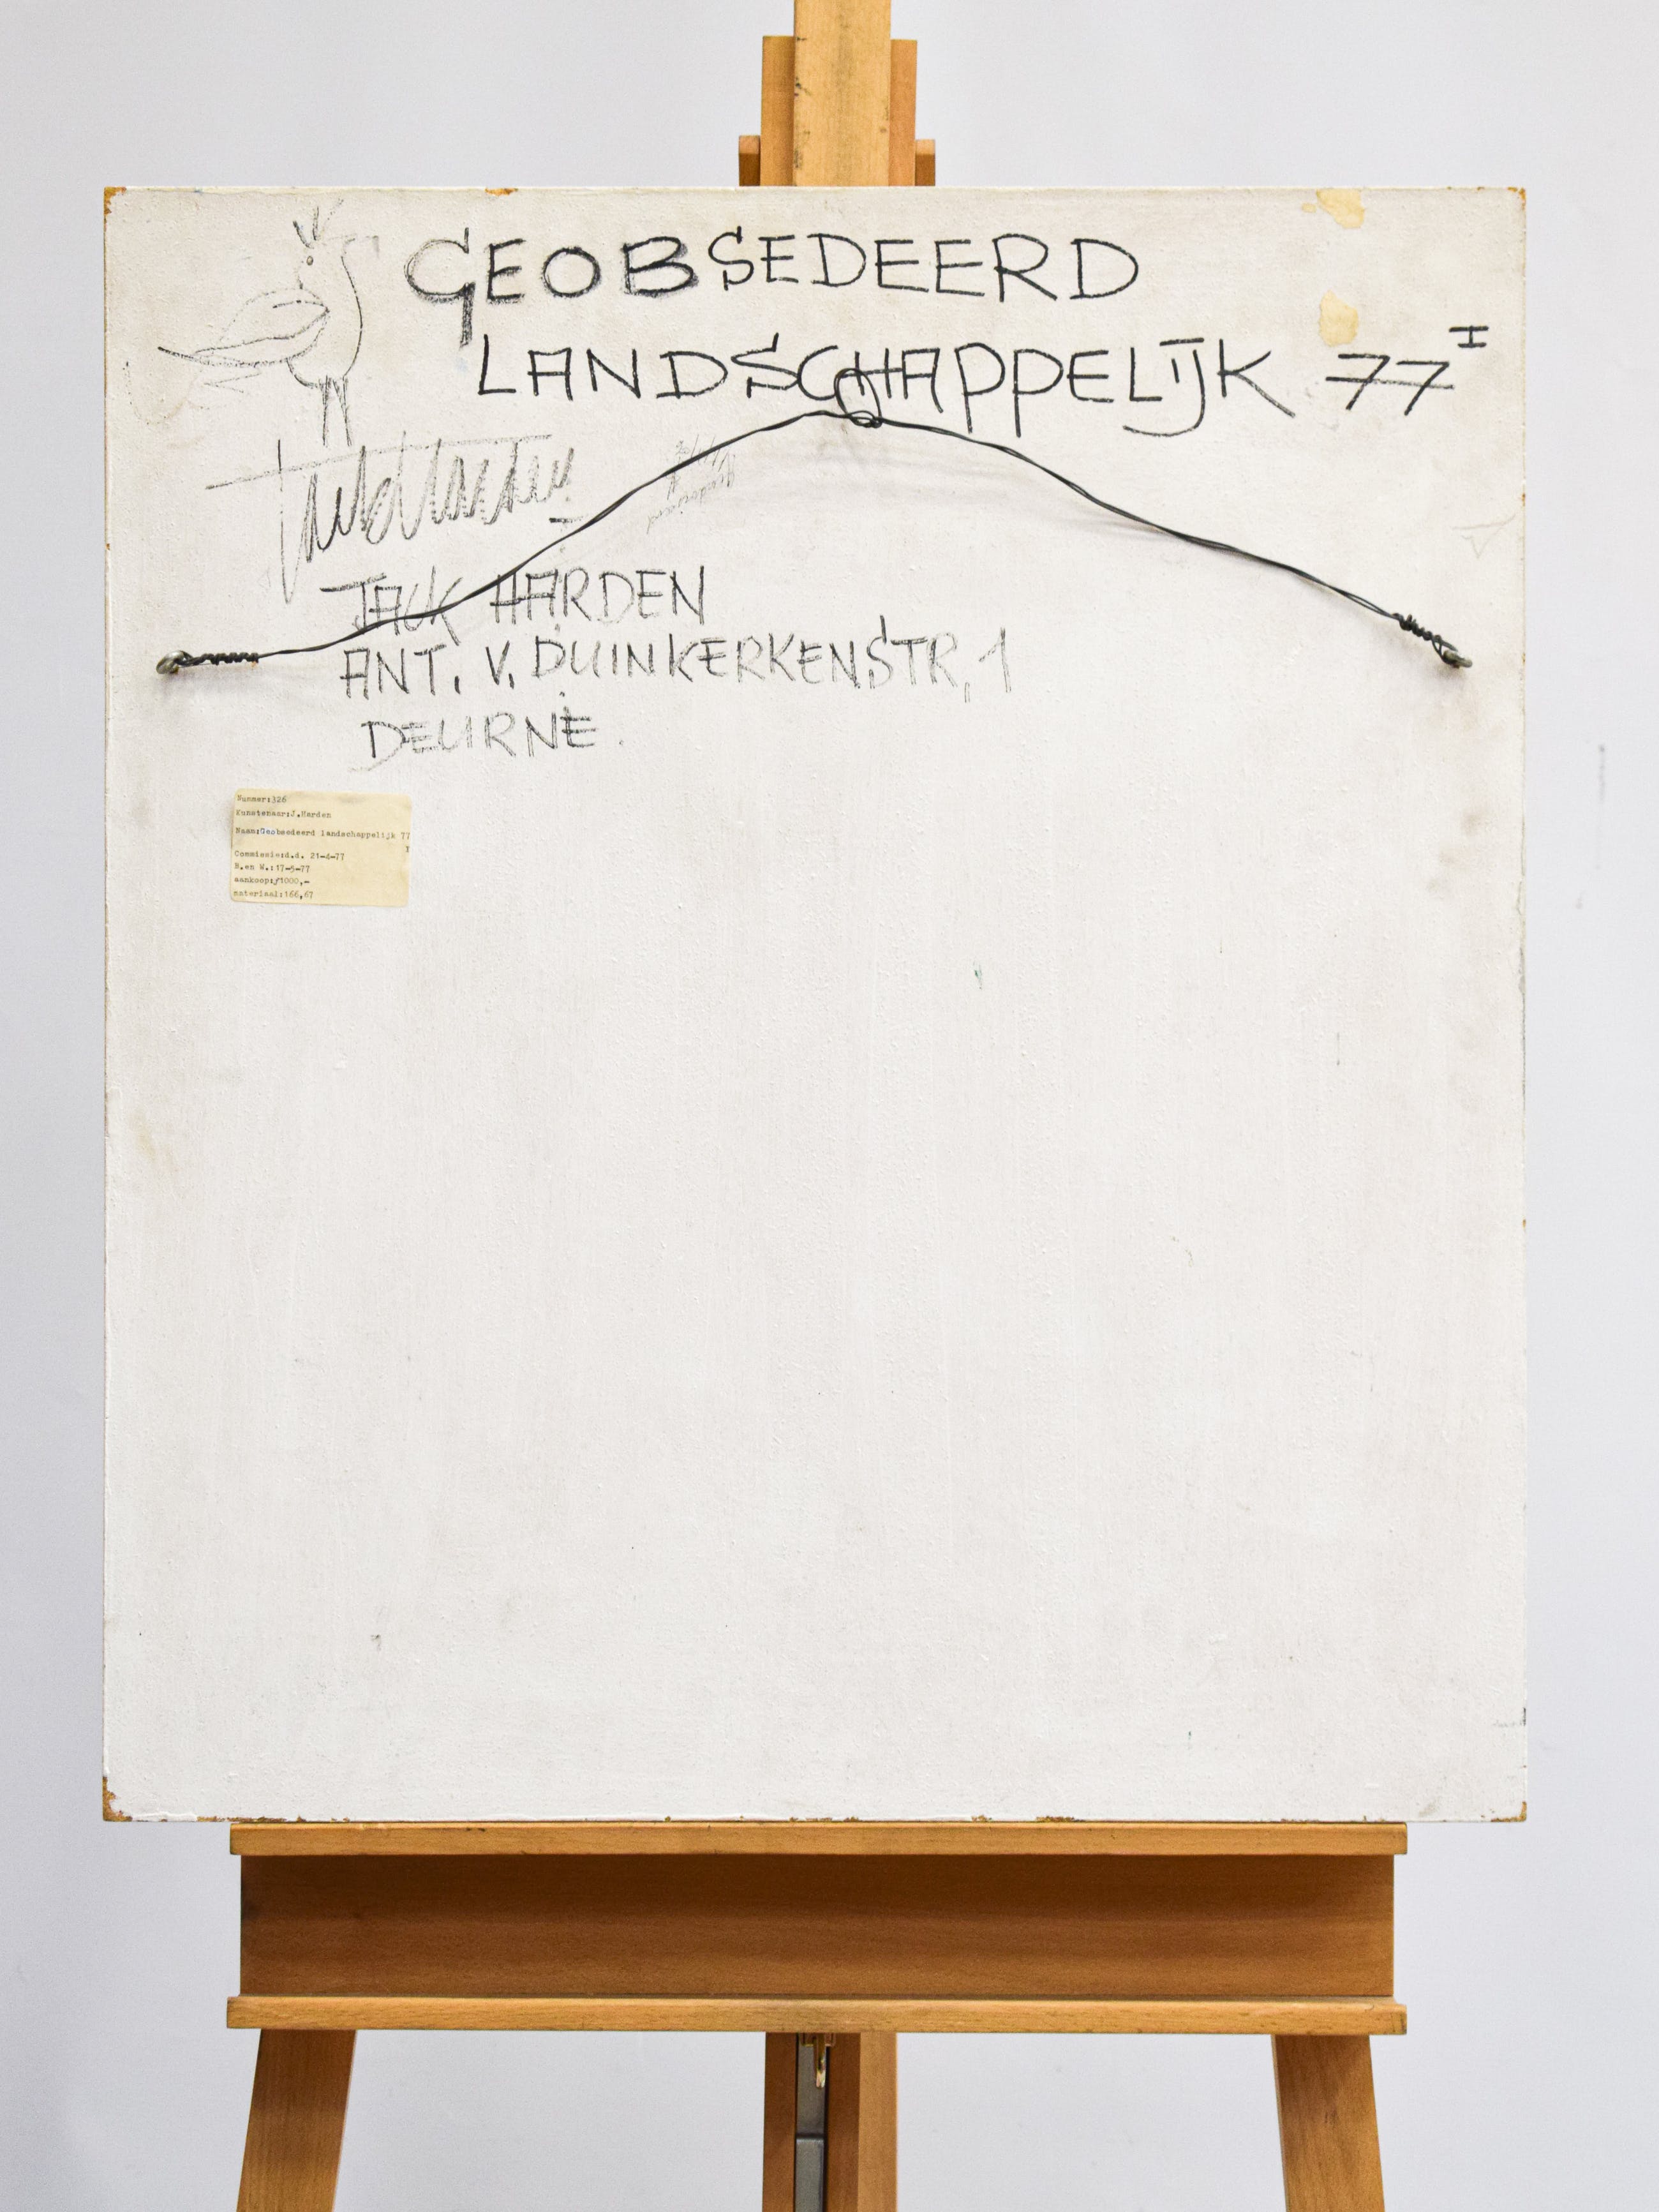 GEOBSEDEERD
LANDSCHAPPELIJK 77 I
JACK HARDEN
ANT. V. DUINKERKENSTR, 1
DEURNE.
Nummer:326
Kunstenaar:J.Harden
Naam:Geobsedeerd landschappelijk 77
I
Commissie:d.d. 21-4-77
B.en W.:17-5-77
aankoop:ƒ1000,-
materiaal:166,67